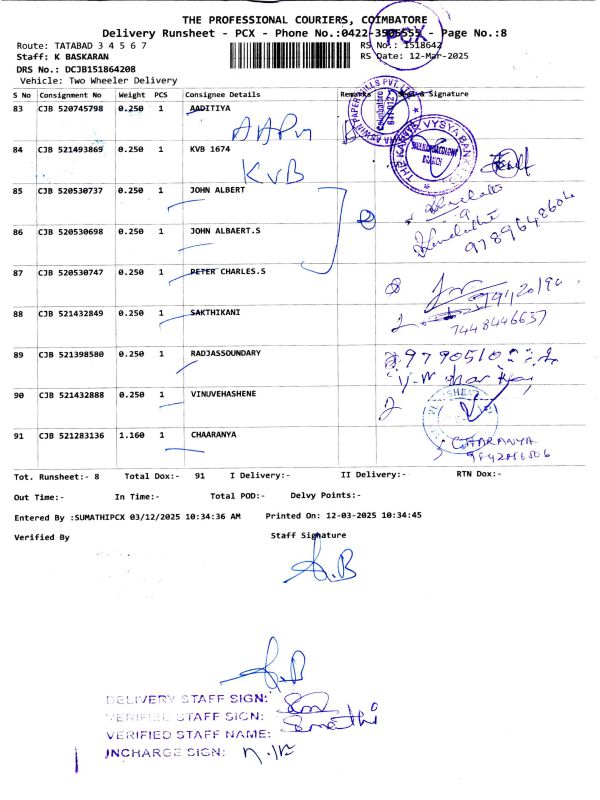 THE PROFESSIONAL COURIERS, COIMBATORE
Delivery Runsheet - PCX - Phone No.:0422-3505555 - Page No.:8
PCX
Route: TATABAD 3 4 5 6 7
RS No.: 1518642
Staff: K BASKARAN
RS Date: 12-Mar-2025
DRS No.: DCJB151864208
Vehicle: Two Wheeler Delivery
S No Consignment No Weight PCS Consignee Details Remarks & Signature
83 CJB 520745798 0.250 1 AADITIYA
84 CJB 521493869 0.250 1 KVB 1674
KVB
85 CJB 520530737 0.250 1 JOHN ALBERT
86 CJB 520530698 0.250 1 JOHN ALBAERT.S
9789648604
87 CJB 520530747 0.250 1 PETER CHARLES.S
88 CJB 521432849 0.250 1 SAKTHIKANI
7448446637
89 CJB 521398580 0.250 1 RADJASSOUNDARY
90 CJB 521432888 0.250 1 VINUVEHASHENE
91 CJB 521283136 1.160 1 CHAARANYA
CHARANYA
Tot. Runsheet:- 8 Total Dox:- 91 I Delivery:- II Delivery:- RTN Dox:-
Out Time:- In Time:- Total POD:- Delvy Points:-
Entered By :SUMATHIPCX 03/12/2025 10:34:36 AM Printed On: 12-03-2025 10:34:45
Verified By Staff Signature
DELIVERY STAFF SIGN:
VERIFIED STAFF SIGN:
VERIFIED STAFF NAME: Sumathi
INCHARGE SIGN: